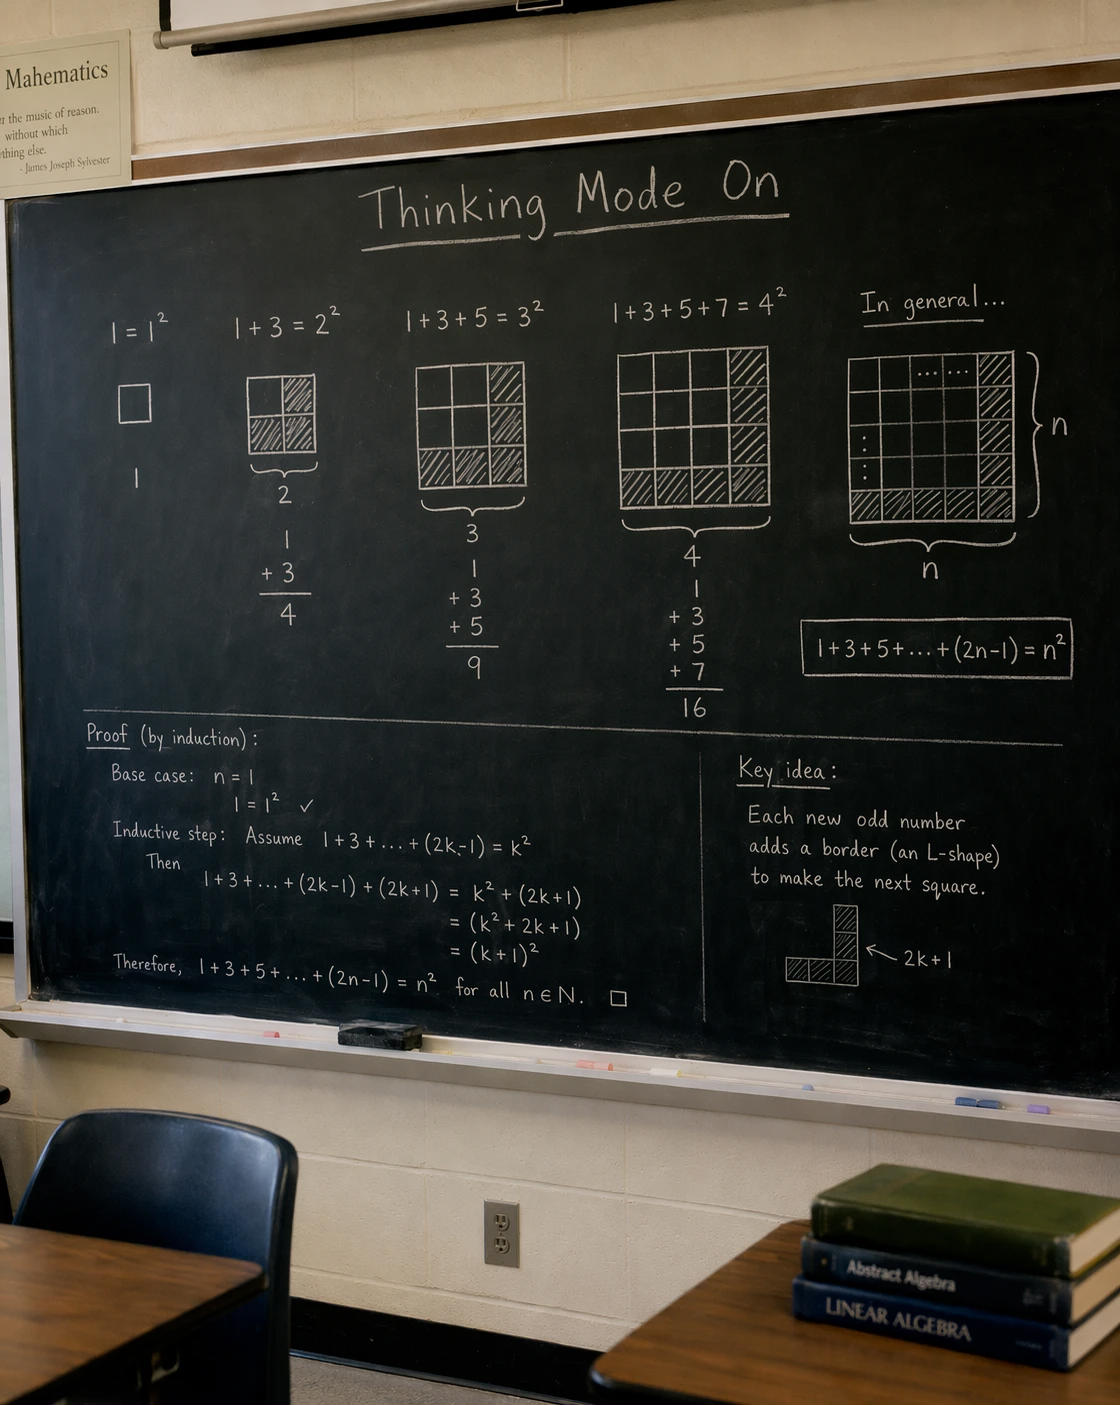 Mahematics
the music of reason.
without which
else.
- James Joseph Sylvester
Thinking Mode On
1 = 1²
1
1 + 3 = 2²
2
1
+ 3
4
1 + 3 + 5 = 3²
3
1
+ 3
+ 5
9
1 + 3 + 5 + 7 = 4²
4
1
+ 3
+ 5
+ 7
16
In general...
... ...
n
n
1 + 3 + 5 + ... + (2n-1) = n²
Proof (by induction):
Base case: n = 1
1 = 1² ✓
Inductive step: Assume 1 + 3 + ... + (2k-1) = k²
Then
1 + 3 + ... + (2k-1) + (2k+1) = k² + (2k+1)
= (k² + 2k + 1)
= (k+1)²
Therefore, 1 + 3 + 5 + ... + (2n-1) = n² for all n ∈ N. □
Key idea:
Each new odd number
adds a border (an L-shape)
to make the next square.
← 2k+1
Abstract Algebra
LINEAR ALGEBRA